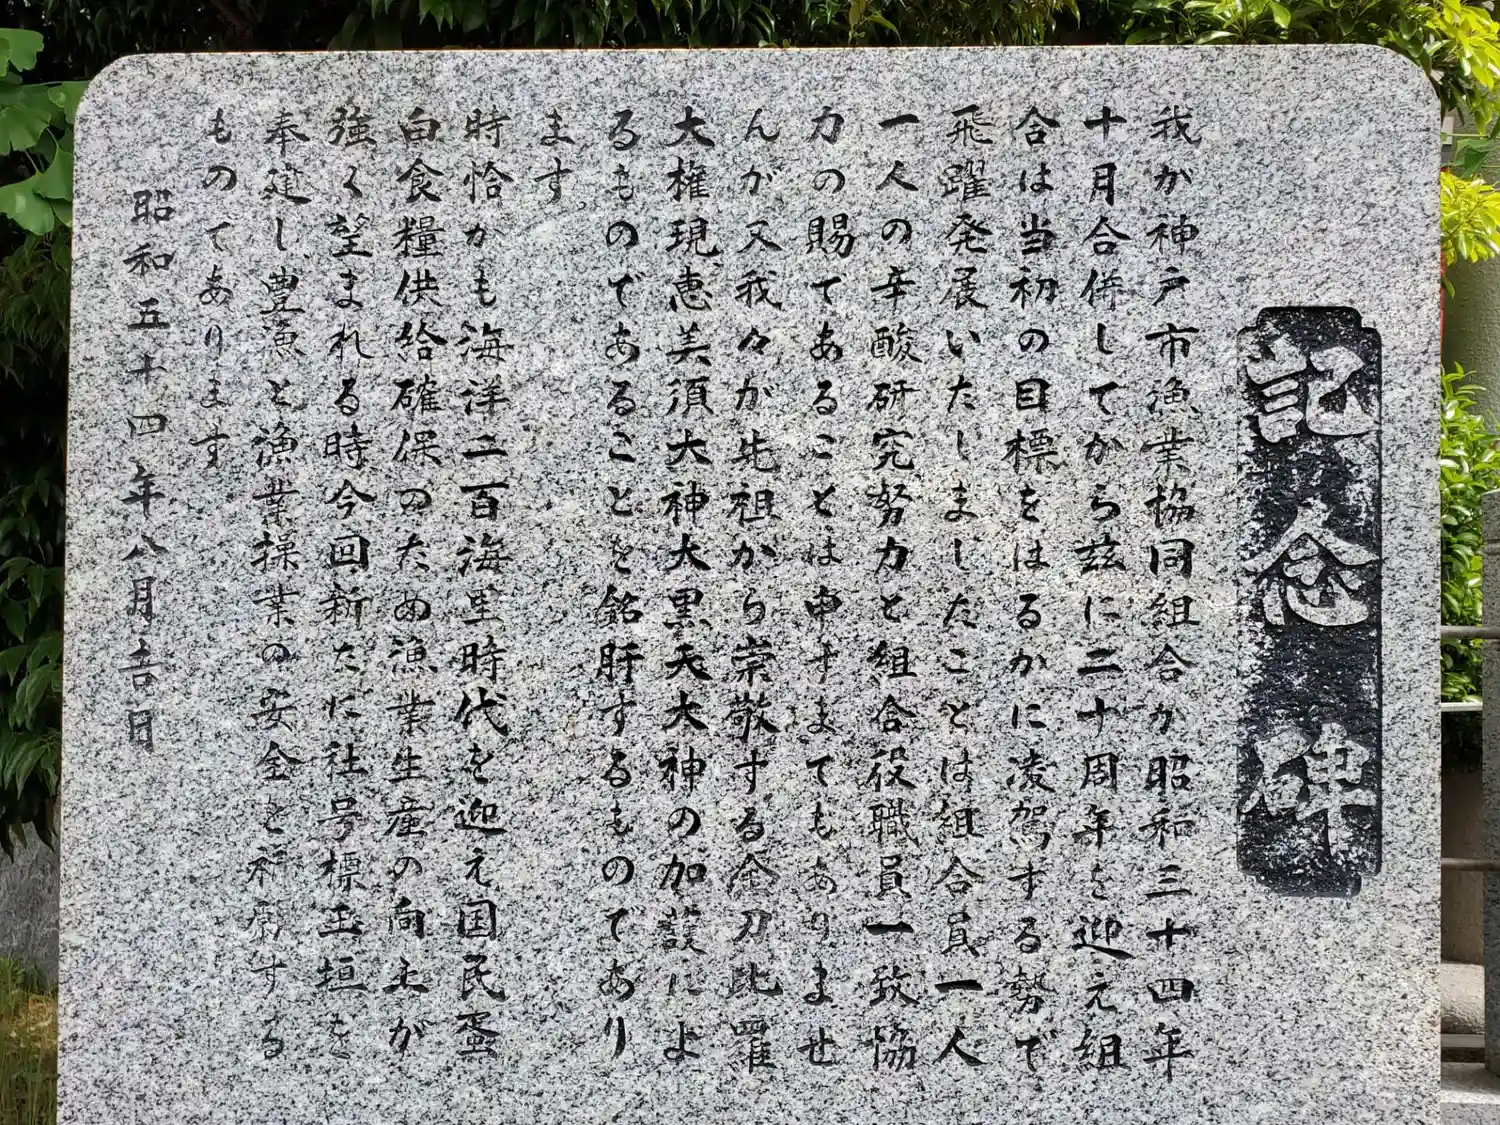 記念碑
我が神戸市漁業協同組合が昭和三十四年
十月合併してから玆に二十周年を迎え組
合は当初の目標をはるかに凌駕する勢で
飛躍発展いたしましたことは組合員一人
一人の辛酸研究努力と組合役職員一致協
力の賜であることは申すまでもありませ
んが又我々が先祖から崇敬する金刀比羅
大権現恵美須大神大黒天大神の加護によ
るものであることを銘肝するものであり
ます。
時恰かも海洋二百海里時代を迎え国民蛋
白食糧供給確保のため漁業生産の向上が
強く望まれる時今回新たに社号標玉垣を
奉建し豊漁と漁業操業の安全を祈願する
ものてあります
昭和五十四年八月吉日